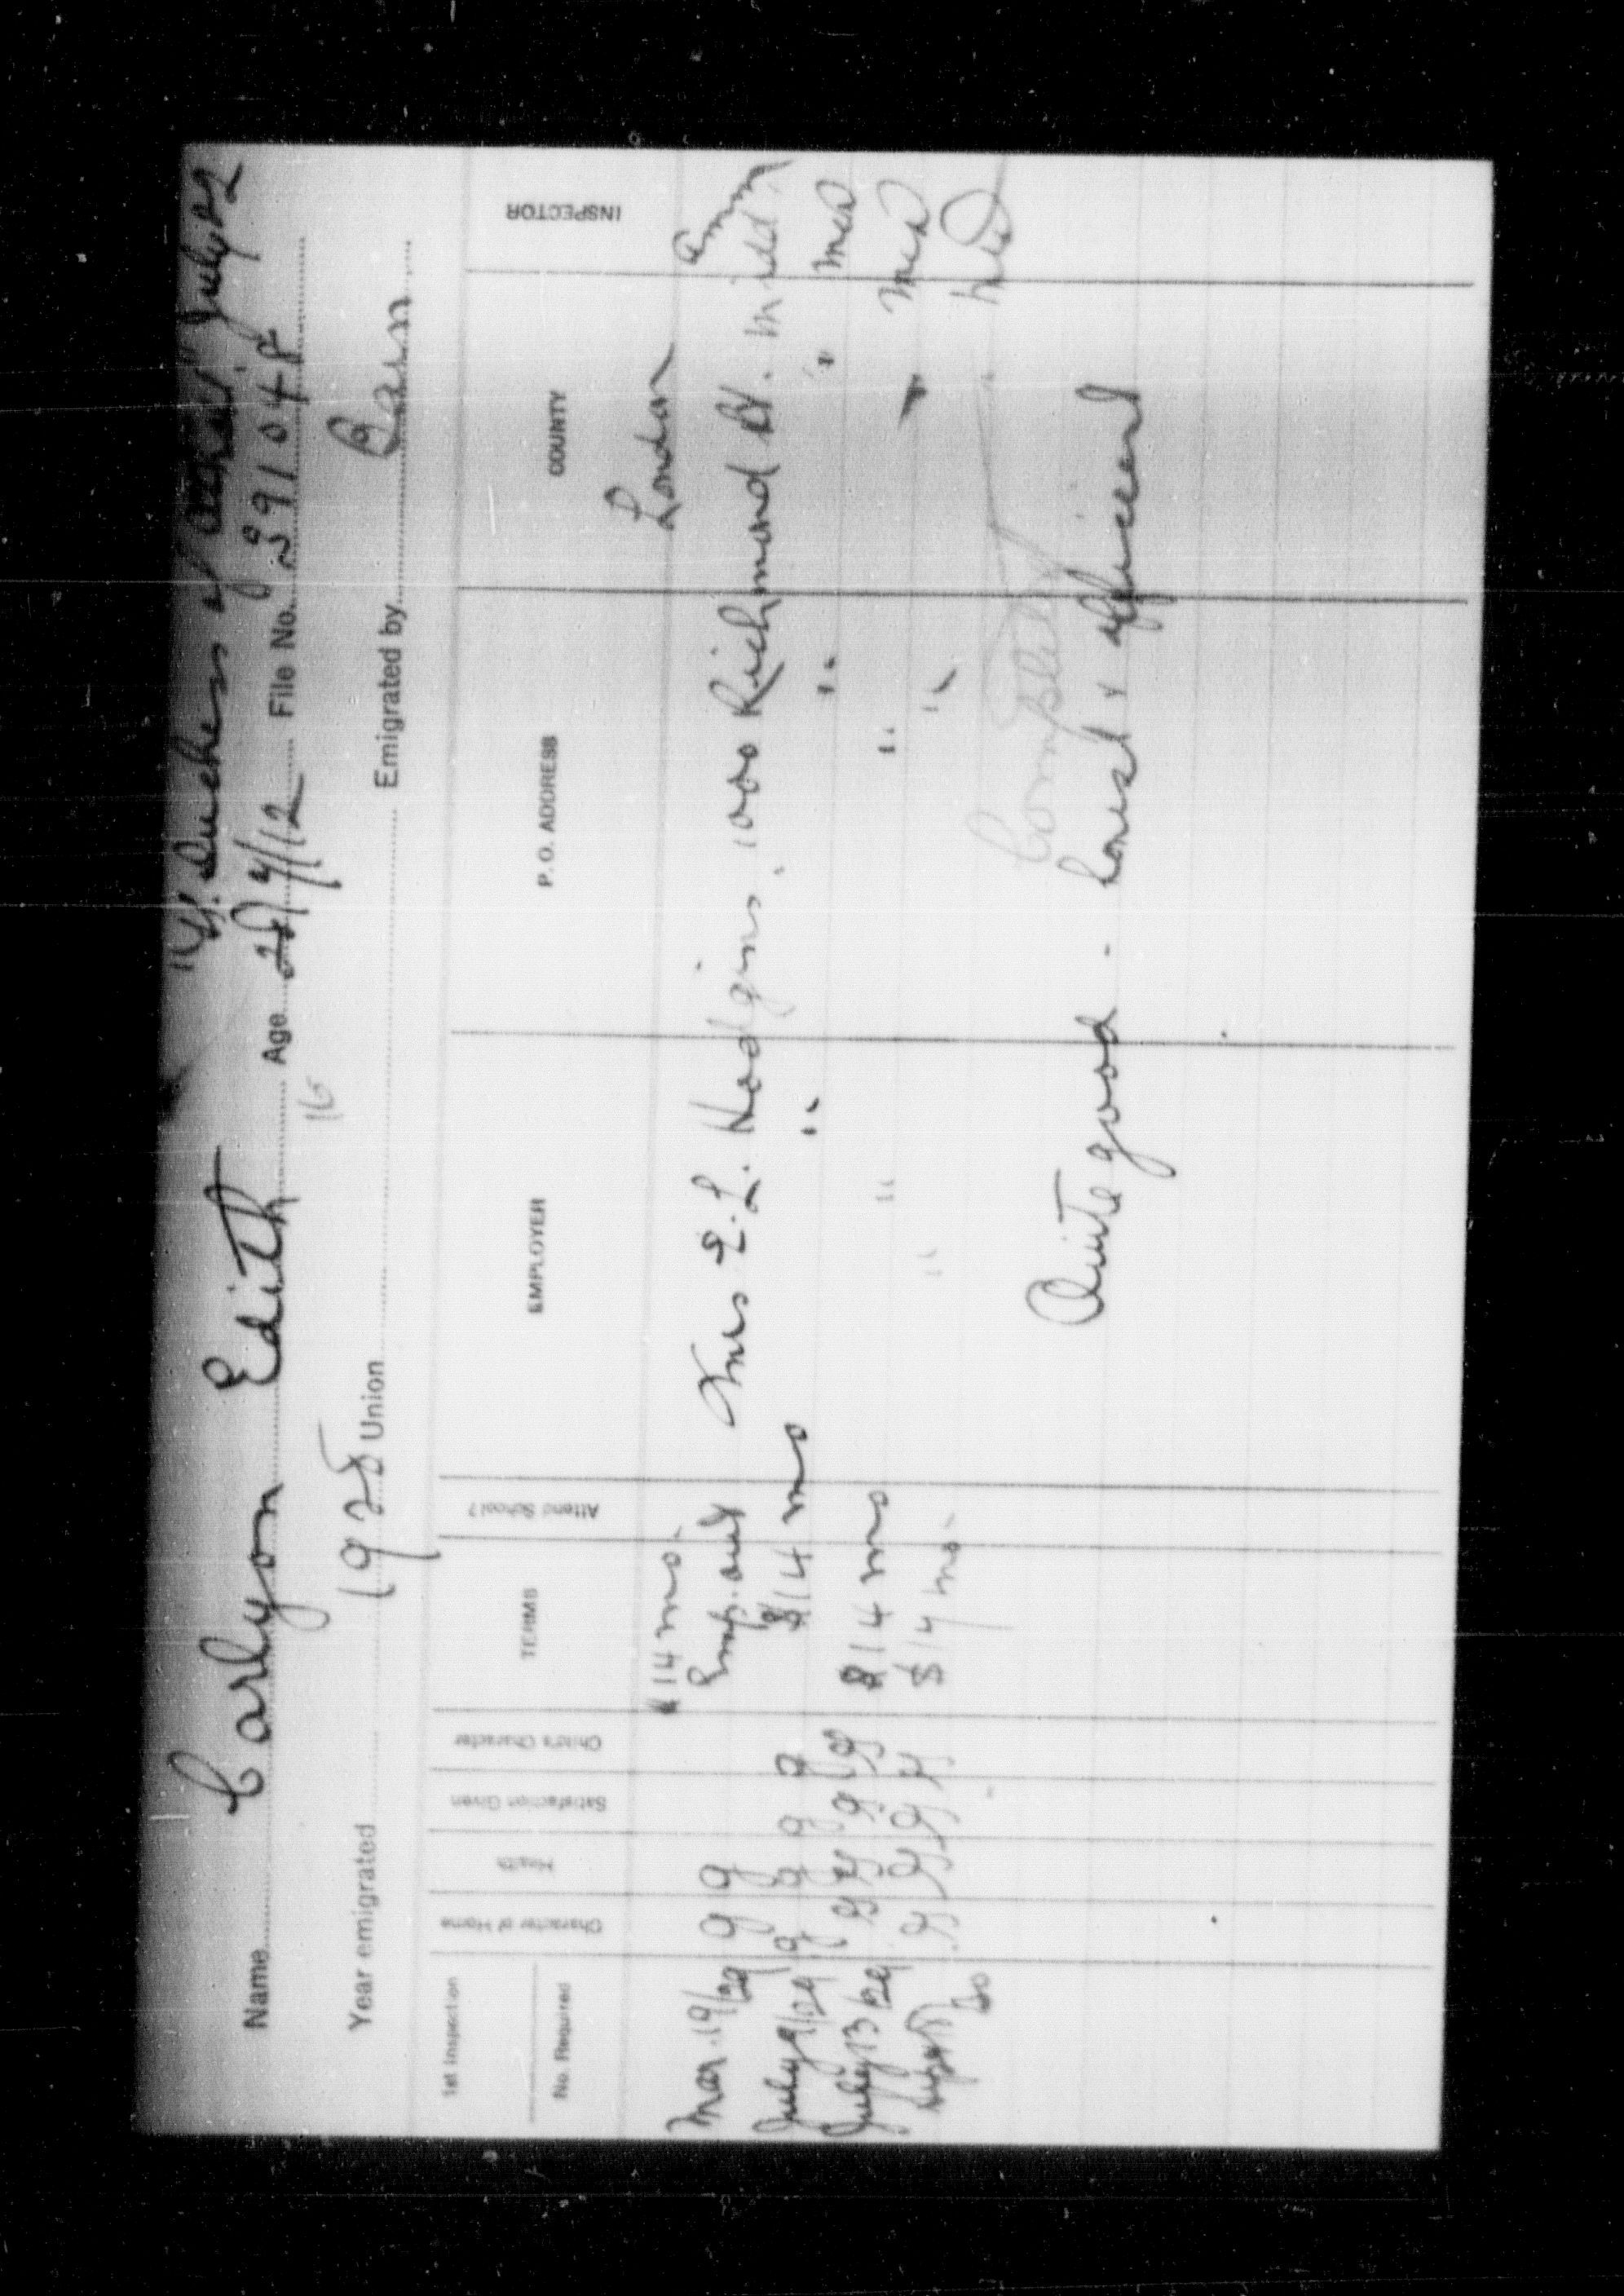 "Duchess of Atholl" July
Name Carlyon Edith Age 2/4/12 File No. 39104
16
Year emigrated 1928 Union Emigrated by Barn
1st Inspection
No. Required
Character of Home Health Satisfaction Given Child's Character TERMS Attend School? EMPLOYER P. O. ADDRESS COUNTY INSPECTOR
$14 mo. London
Mar. 19/29 g g Emp. out Mrs E. L. Hodgins, 1000 Richmond St. Midd.
July 9/29 g g g g $14 mo " " "
July 13/29 g g g g $14 mo " "
Sept 30 g g g g $14 mo. " "
Completed
Quite good - honest & efficient